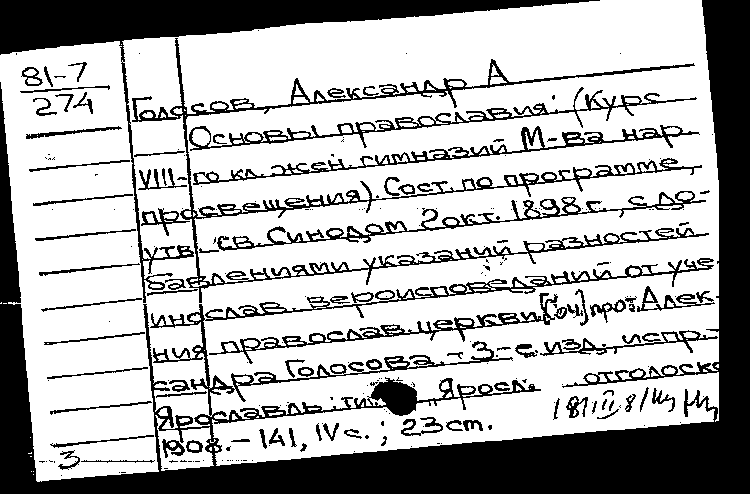 81-7
274
Голосов, Александр А
Основы православия: (Курс
VIII-го кл. жен. гимназий М-ва нар.
просвещения). Сост. по программе,
утв. св. Синодом 2 окт. 1898 г., с до-
бавлениями указаний разностей
инослав. вероисповеданий от уче-
ния православ. церкви. [Соч.] прот. Алек-
сандра Голосова. - 3-е изд., испр. -
Ярославль: Яросл. отголоск
1908. - 141, IV с.; 23 cm.
3